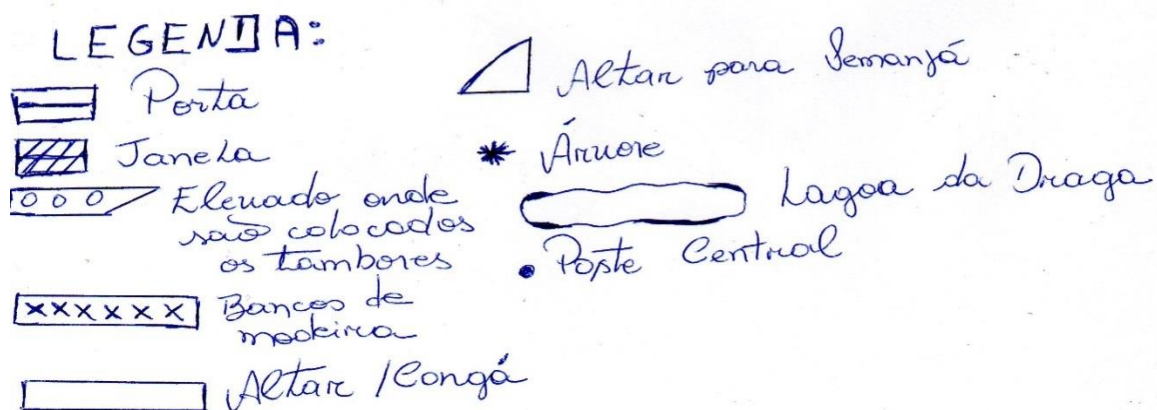 LEGENDA:
Porta
Janela
Elevado onde
são colocados
os tambores
Bancos de
madeira
Altar / Congá
Altar para Iemanjá
Árvore
Lagoa da Draga
Poste Central